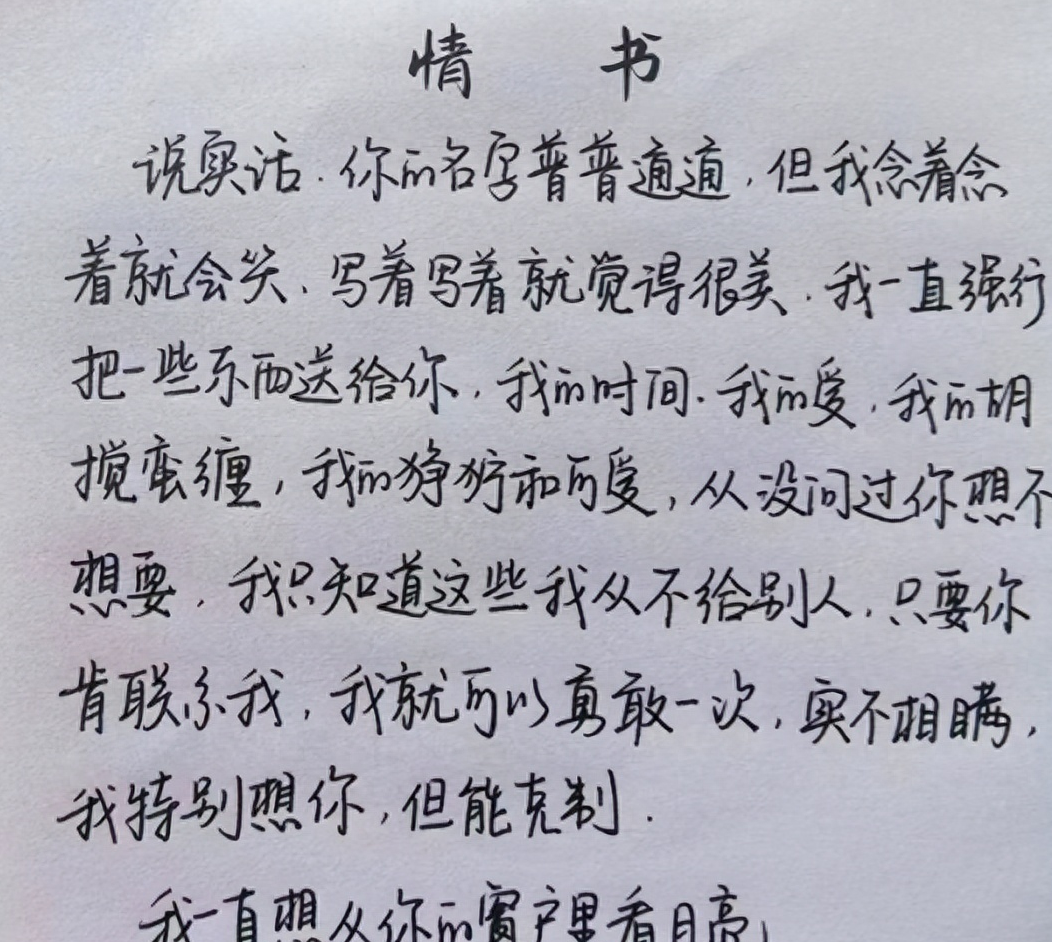 情 书
说实话.你的名字普普通通,但我念着念
着就会笑.写着写着就觉得很美.我一直强行
把一些东西送给你,我的时间.我的爱,我的胡
搅蛮缠,我的狰狞和可爱,从没问过你想不
想要,我只知道这些我从不给别人.只要你
肯联系我,我就可以勇敢一次,实不相瞒,
我特别想你,但能克制.
我一直想从你的窗户里看月亮,